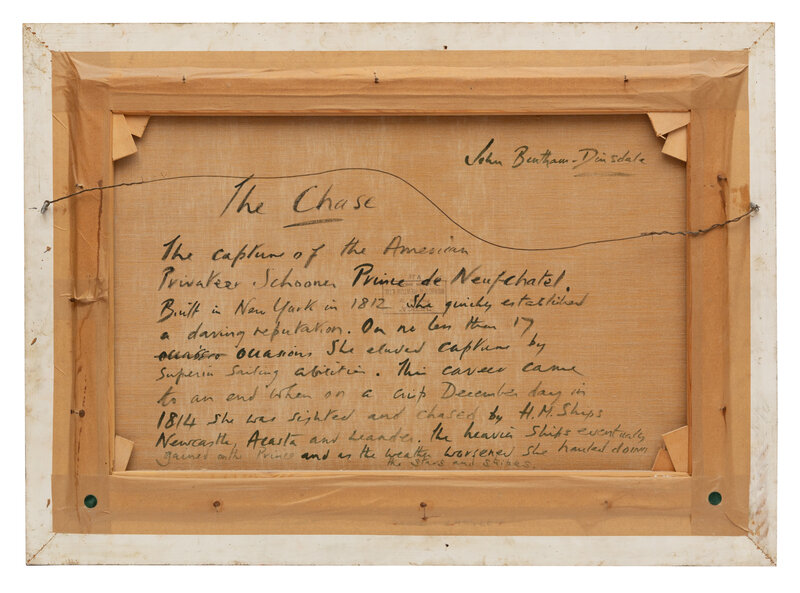 John Bentham-Dinsdale
The Chase
The capture of the American
Privateer Schooner Prince de Neufchatel.
Built in New York in 1812 She quickly established
a daring reputation. On no less than 17
occasions She eluded capture by
Superior Sailing abilities. This career came
to an end when on a crisp December day in
1814 she was sighted and chased by H.M. Ships
Newcastle, Acasta and Leander. The heavier Ships eventually
gained on the Prince and as the weather worsened She hauled down
the Stars and Stripes.